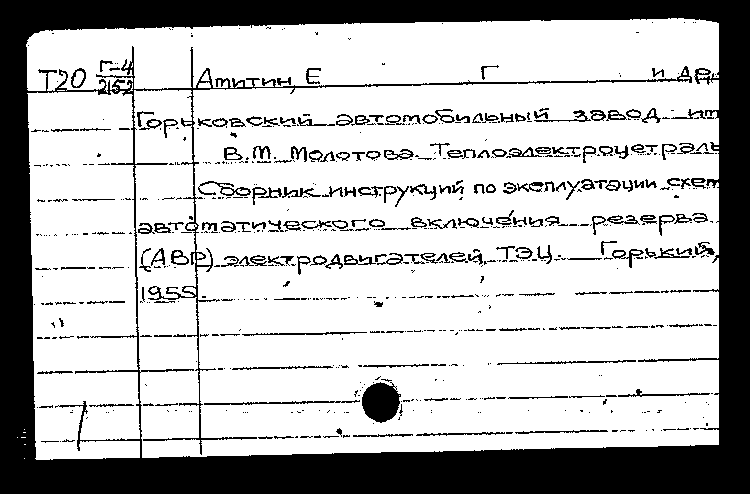 Т20 Г-4/2152 Амитин, Е Г и др.
Горьковский автомобильный завод им
В.М. Молотова. Теплоэлектроцетраль
Сборник инструкций по эксплуатации схем
автоматического включения резерва
(АВР) электродвигателей ТЭЦ. Горький,
1955.